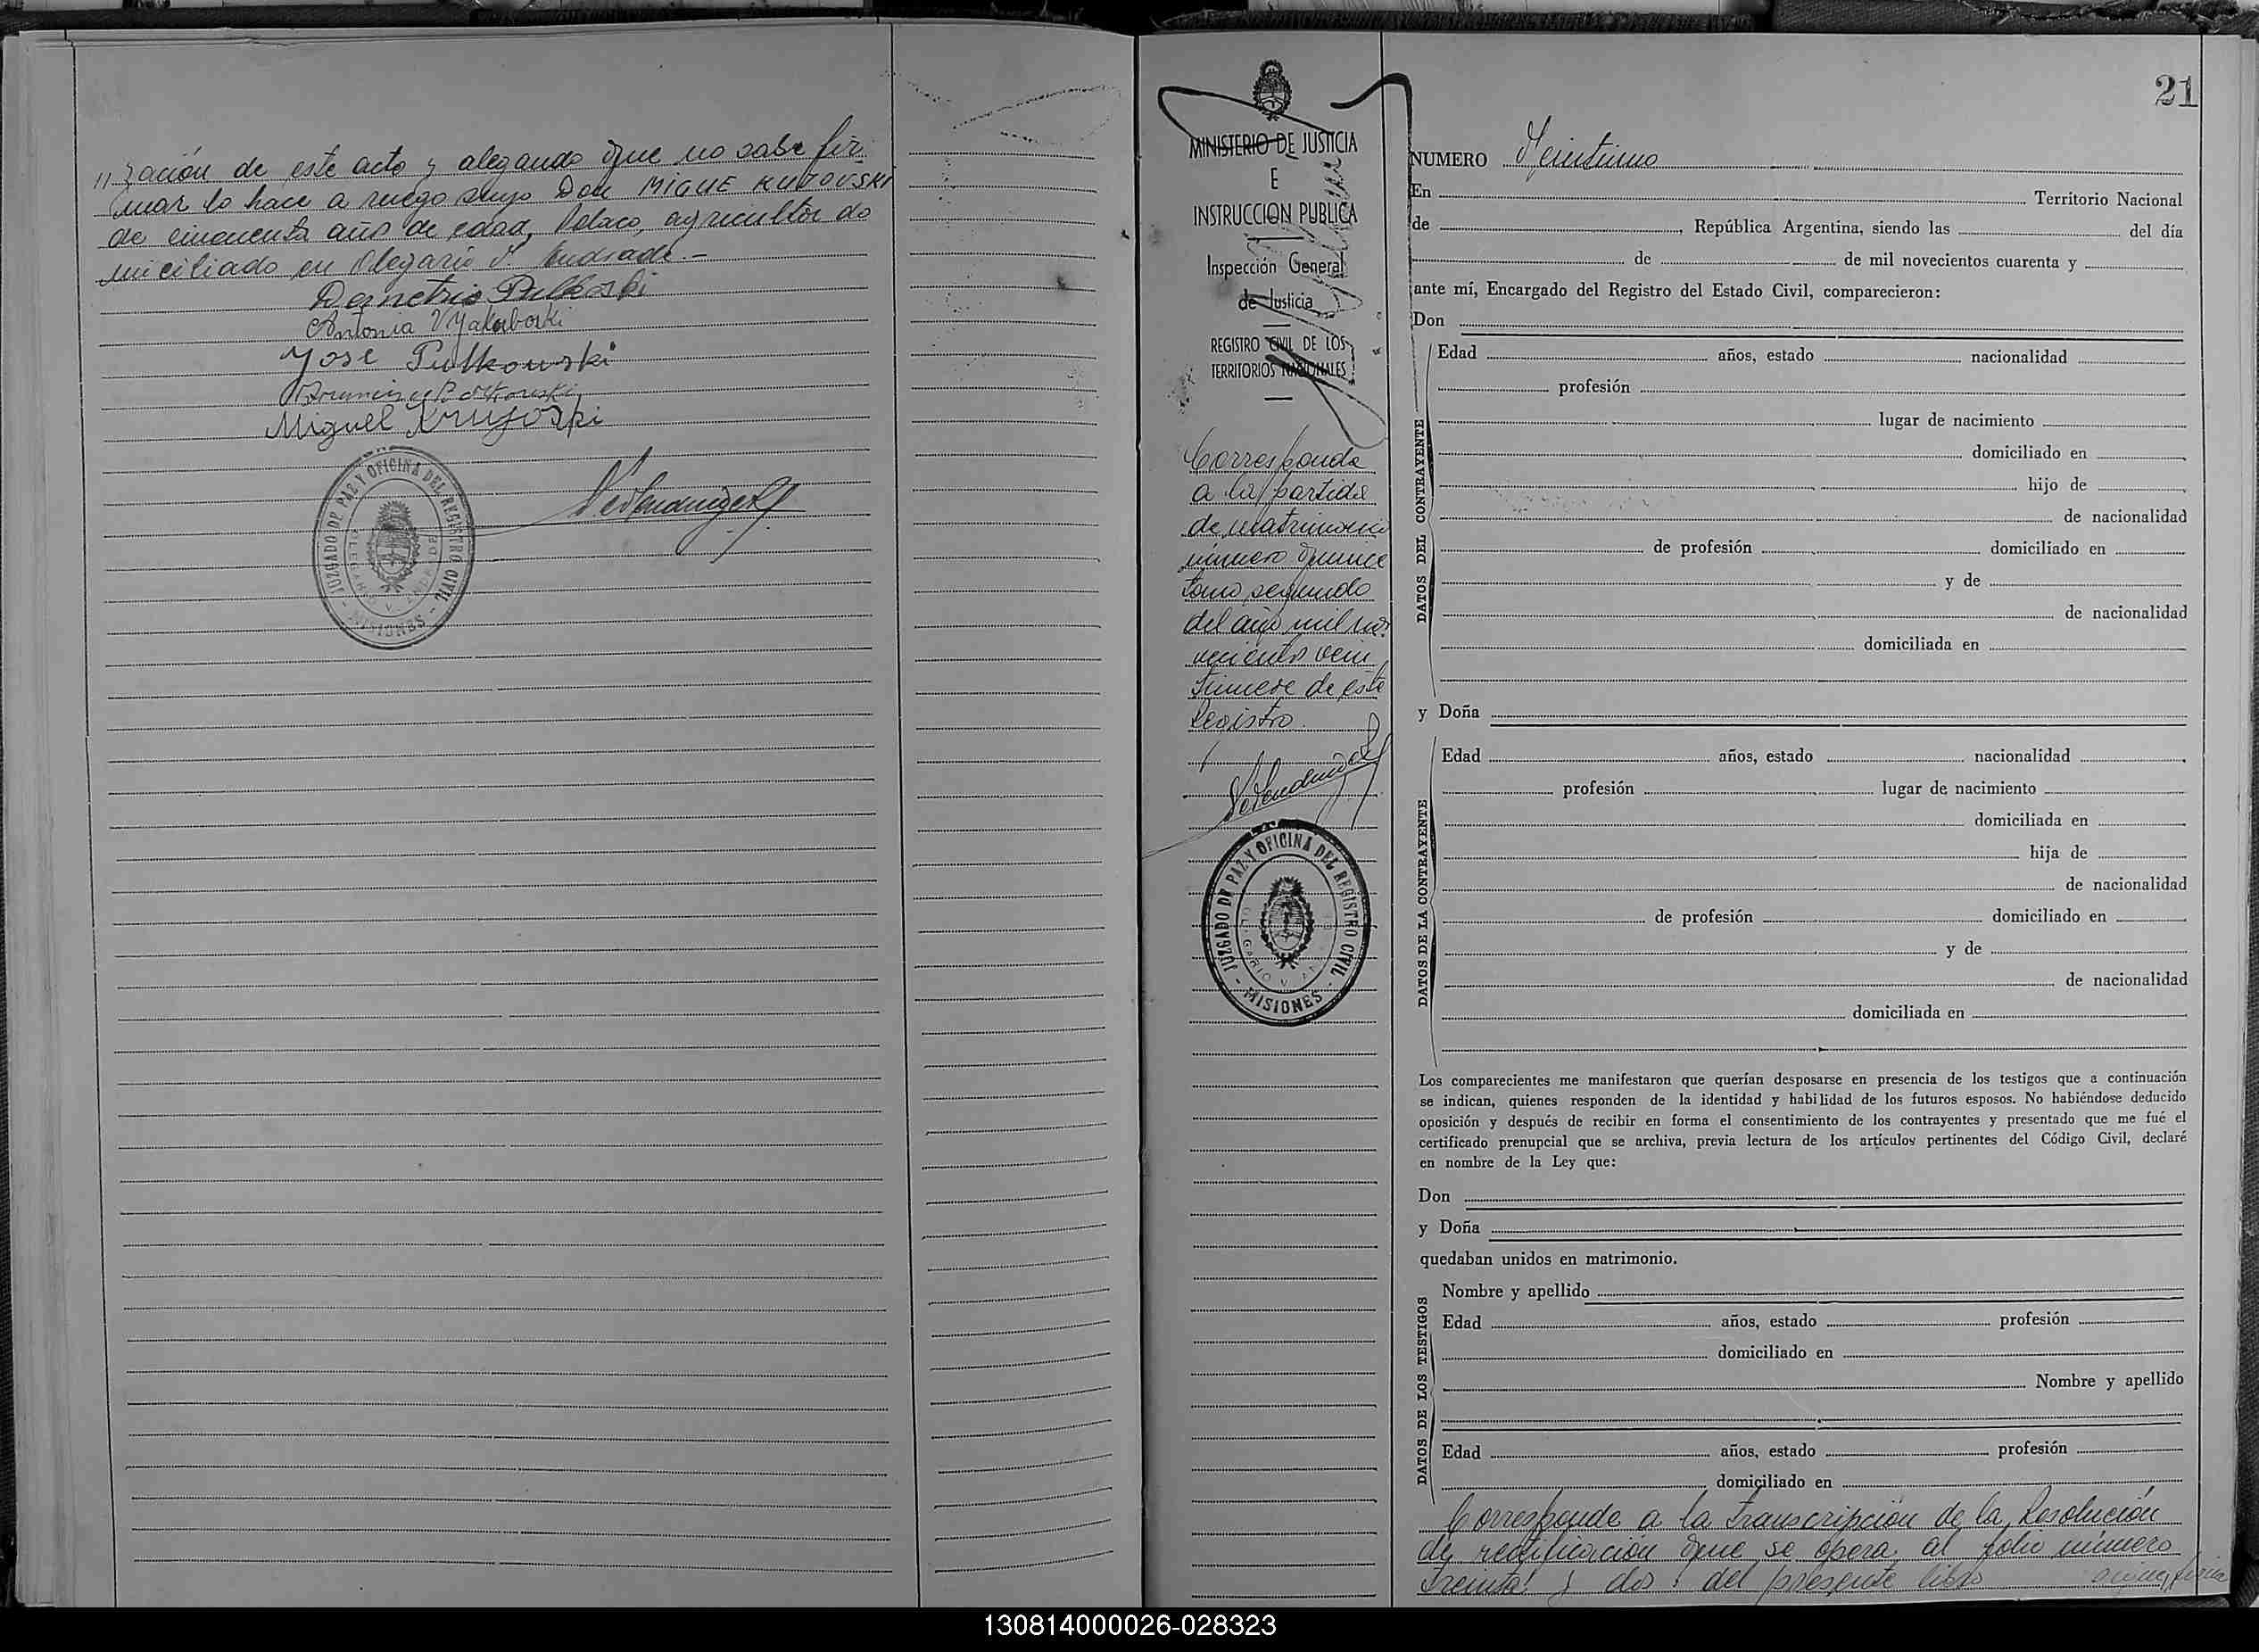 // zación de este acto y alegando que no sabe fir-
mar lo hace a ruego suyo Don MIGUE KUZOVSKI
de cincuenta años de edad, Polaco, agricultor do
miciliado en Olegario V. Andrade.-
Demetrio
Antonia
Jose Putkowski
Miguel
JUZGADO DE PAZ Y OFICINA DEL REGISTRO CIVIL
- MISIONES -
MINISTERIO DE JUSTICIA
E
INSTRUCCION PUBLICA
Inspección General
de Justicia
REGISTRO CIVIL DE LOS
TERRITORIOS NACIONALES
Corresponde
a la partida
de matrimonio
número quince
tomo segundo
del año mil no-
vecientos vein
tinueve de este
Registro.
JUZGADO DE PAZ Y OFICINA DEL REGISTRO CIVIL
- MISIONES -
21
NUMERO Veintiuno
En Territorio Nacional
de , República Argentina, siendo las del día
de de mil novecientos cuarenta y
ante mí, Encargado del Registro del Estado Civil, comparecieron:
Don
DATOS DEL CONTRAYENTE
Edad años, estado nacionalidad
profesión
lugar de nacimiento
domiciliado en
hijo de
de nacionalidad
de profesión domiciliado en
y de
de nacionalidad
domiciliada en
y Doña
DATOS DE LA CONTRAYENTE
Edad años, estado nacionalidad
profesión lugar de nacimiento
domiciliada en
hija de
de nacionalidad
de profesión domiciliado en
y de
de nacionalidad
domiciliada en
Los comparecientes me manifestaron que querían desposarse en presencia de los testigos que a continuación
se indican, quienes responden de la identidad y habilidad de los futuros esposos. No habiéndose deducido
oposición y después de recibir en forma el consentimiento de los contrayentes y presentado que me fué el
certificado prenupcial que se archiva, previa lectura de los artículos pertinentes del Código Civil, declaré
en nombre de la Ley que:
Don
y Doña
quedaban unidos en matrimonio.
DATOS DE LOS TESTIGOS
Nombre y apellido
Edad años, estado profesión
domiciliado en
Nombre y apellido
Edad años, estado profesión
domiciliado en
Corresponde a la transcripción de la Resolución
de rectificación que se opera al folio número
treinta y dos del presente libro
130814000026-028323